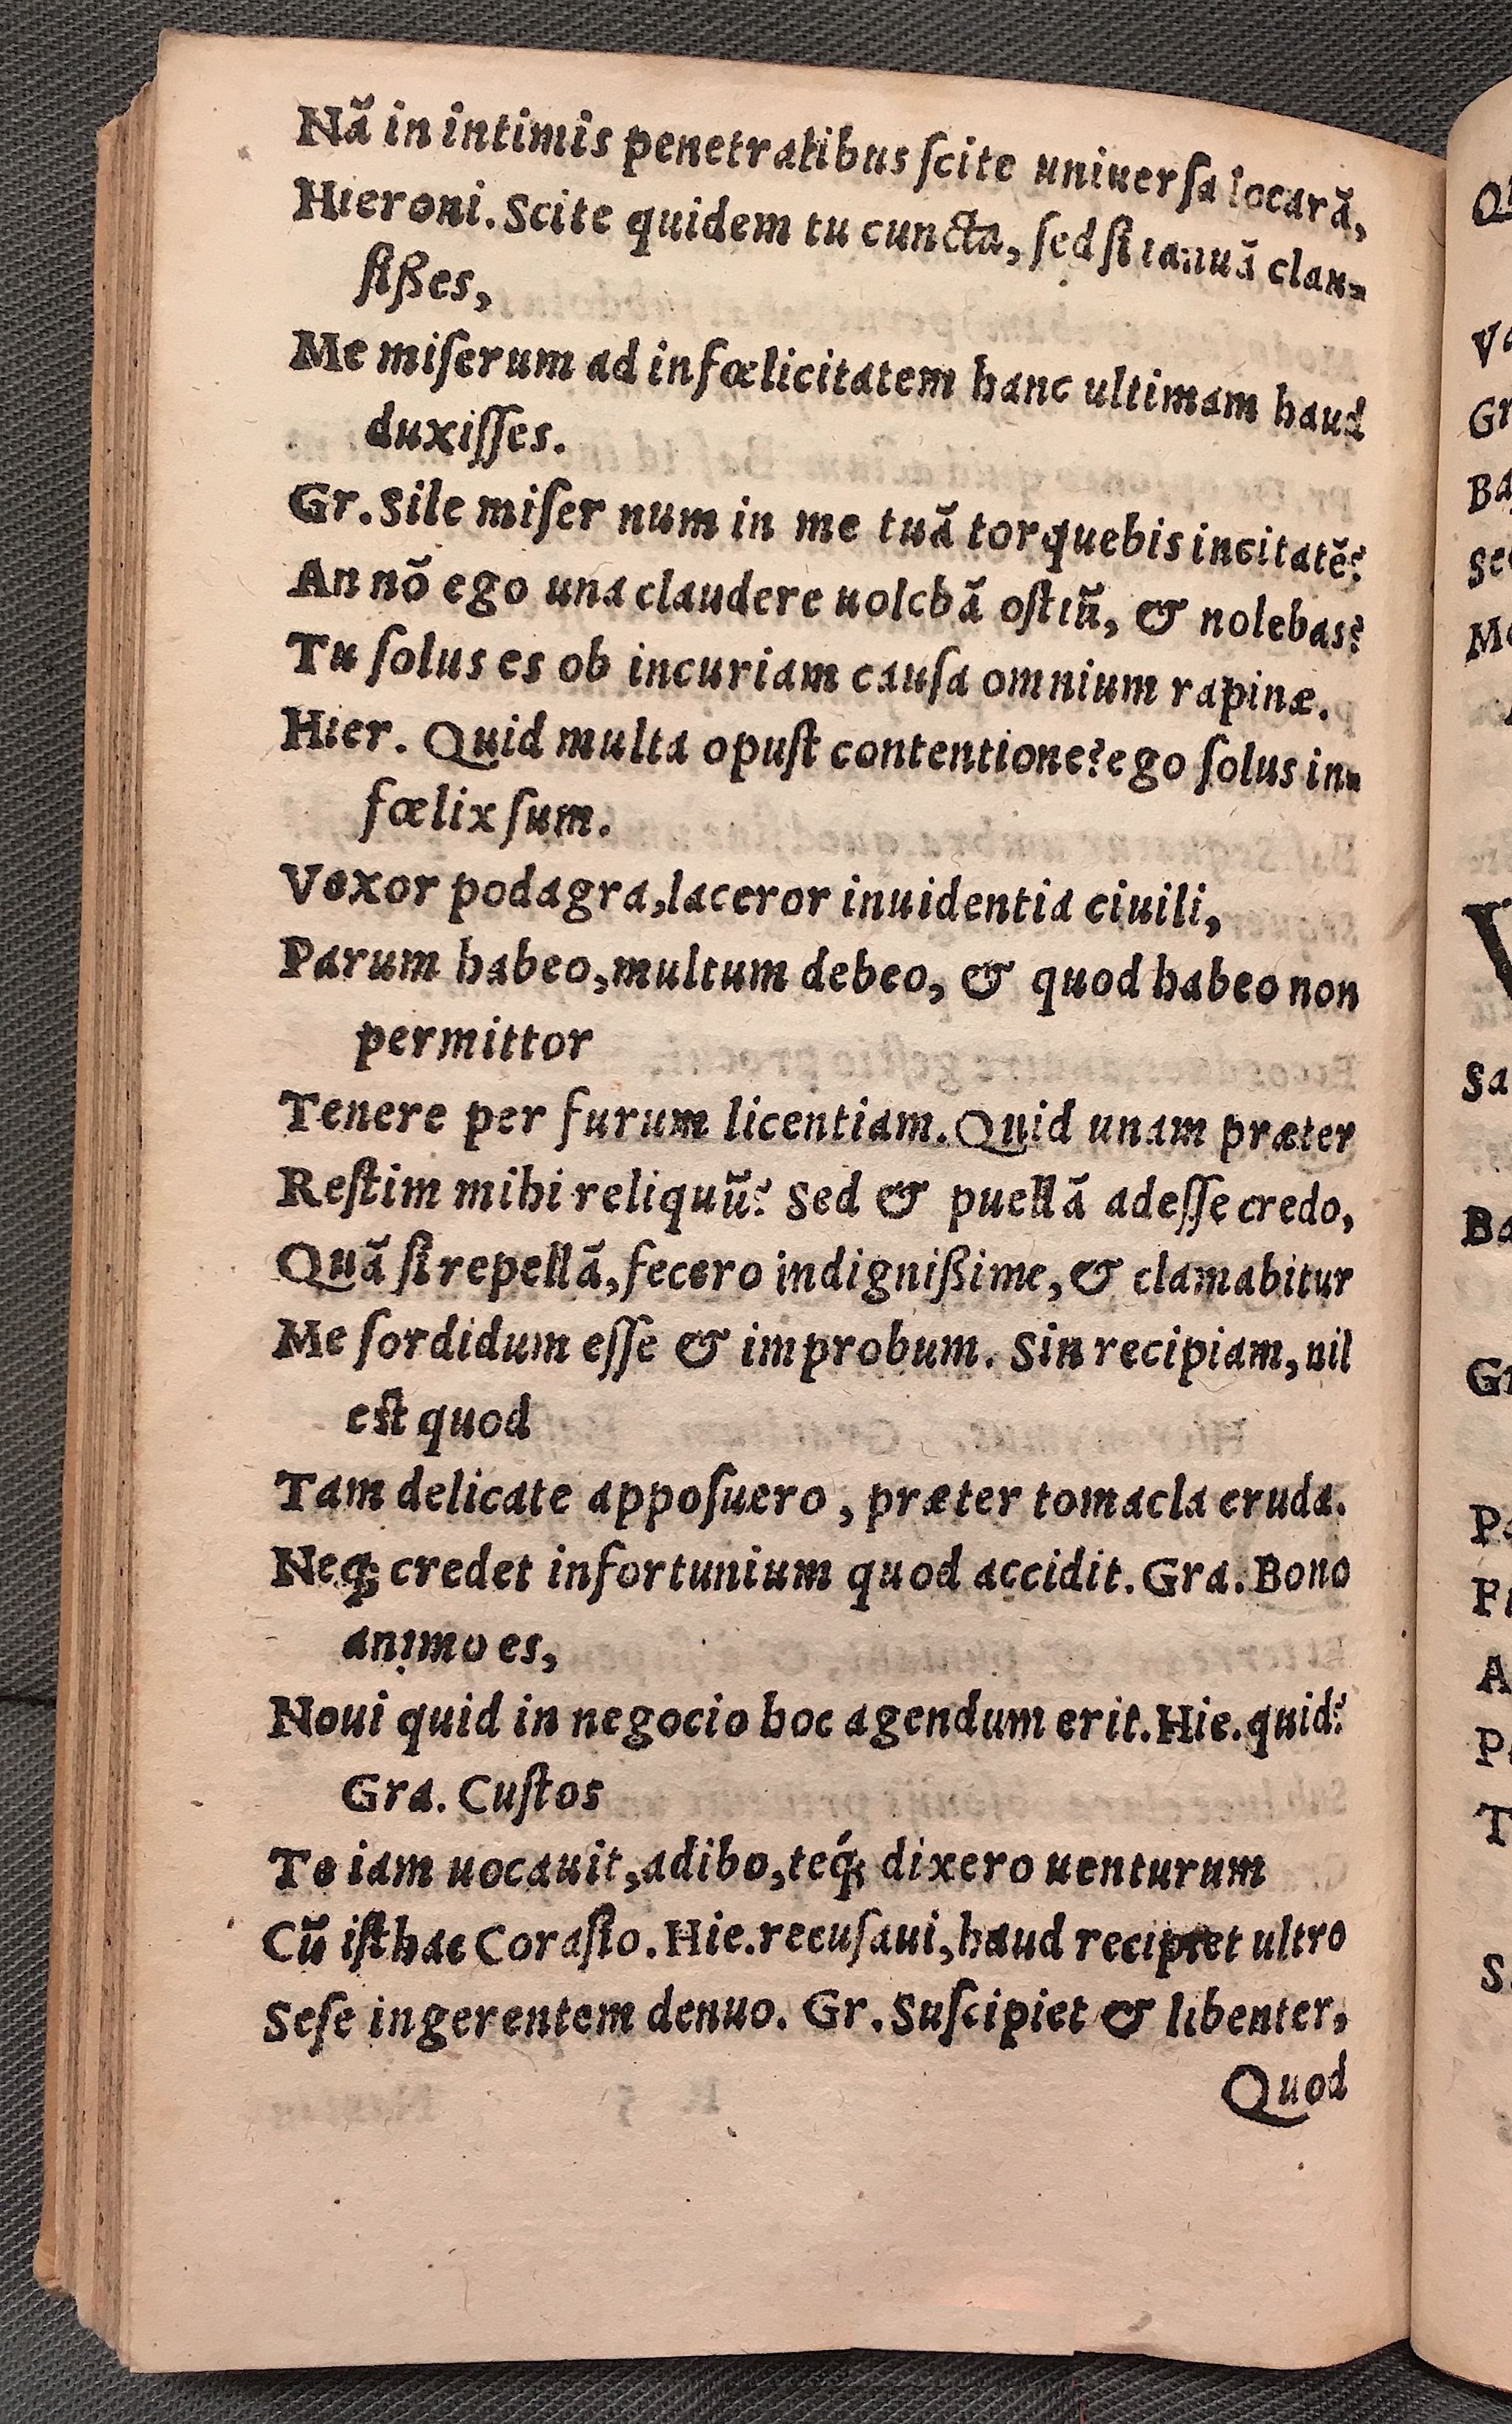 Nã in intimis penetralibus ſcite uniuerſa locarã,
Hieroni. Scite quidem tu cuncta, ſed ſi ianuã clau-
ſißes,
Me miſerum ad infœlicitatem hanc ultimam haud
duxiſſes.
Gr. Sile miſer num in me tuã torquebis incitatẽ?
An nõ ego una claudere uolebã oſtiũ, & nolebas?
Tu ſolus es ob incuriam cauſa omnium rapinæ.
Hier. Quid multa opuſt contentione? ego ſolus in-
fœlix ſum.
Vexor podagra, laceror inuidentia ciuili,
Parum habeo, multum debeo, & quod habeo non
permittor
Tenere per furum licentiam. Quid unam præter
Reſtim mihi reliquũ? Sed & puellã adeſſe credo,
Quã ſi repellã, fecero indignißime, & clamabitur
Me ſordidum eſſe & improbum. Sin recipiam, nil
eſt quod
Tam delicate appoſuero, præter tomacla cruda.
Neq; credet infortunium quod accidit. Gra. Bono
animo es,
Noui quid in negocio hoc agendum erit. Hie. quid?
Gra. Cuſtos
Te iam uocauit, adibo, teq́; dixero uenturum
Cũ iſthac Coraſio. Hie. recuſaui, haud recipiet ultro
Seſe ingerentem denuo. Gr. Suſcipiet & libenter,
Quod